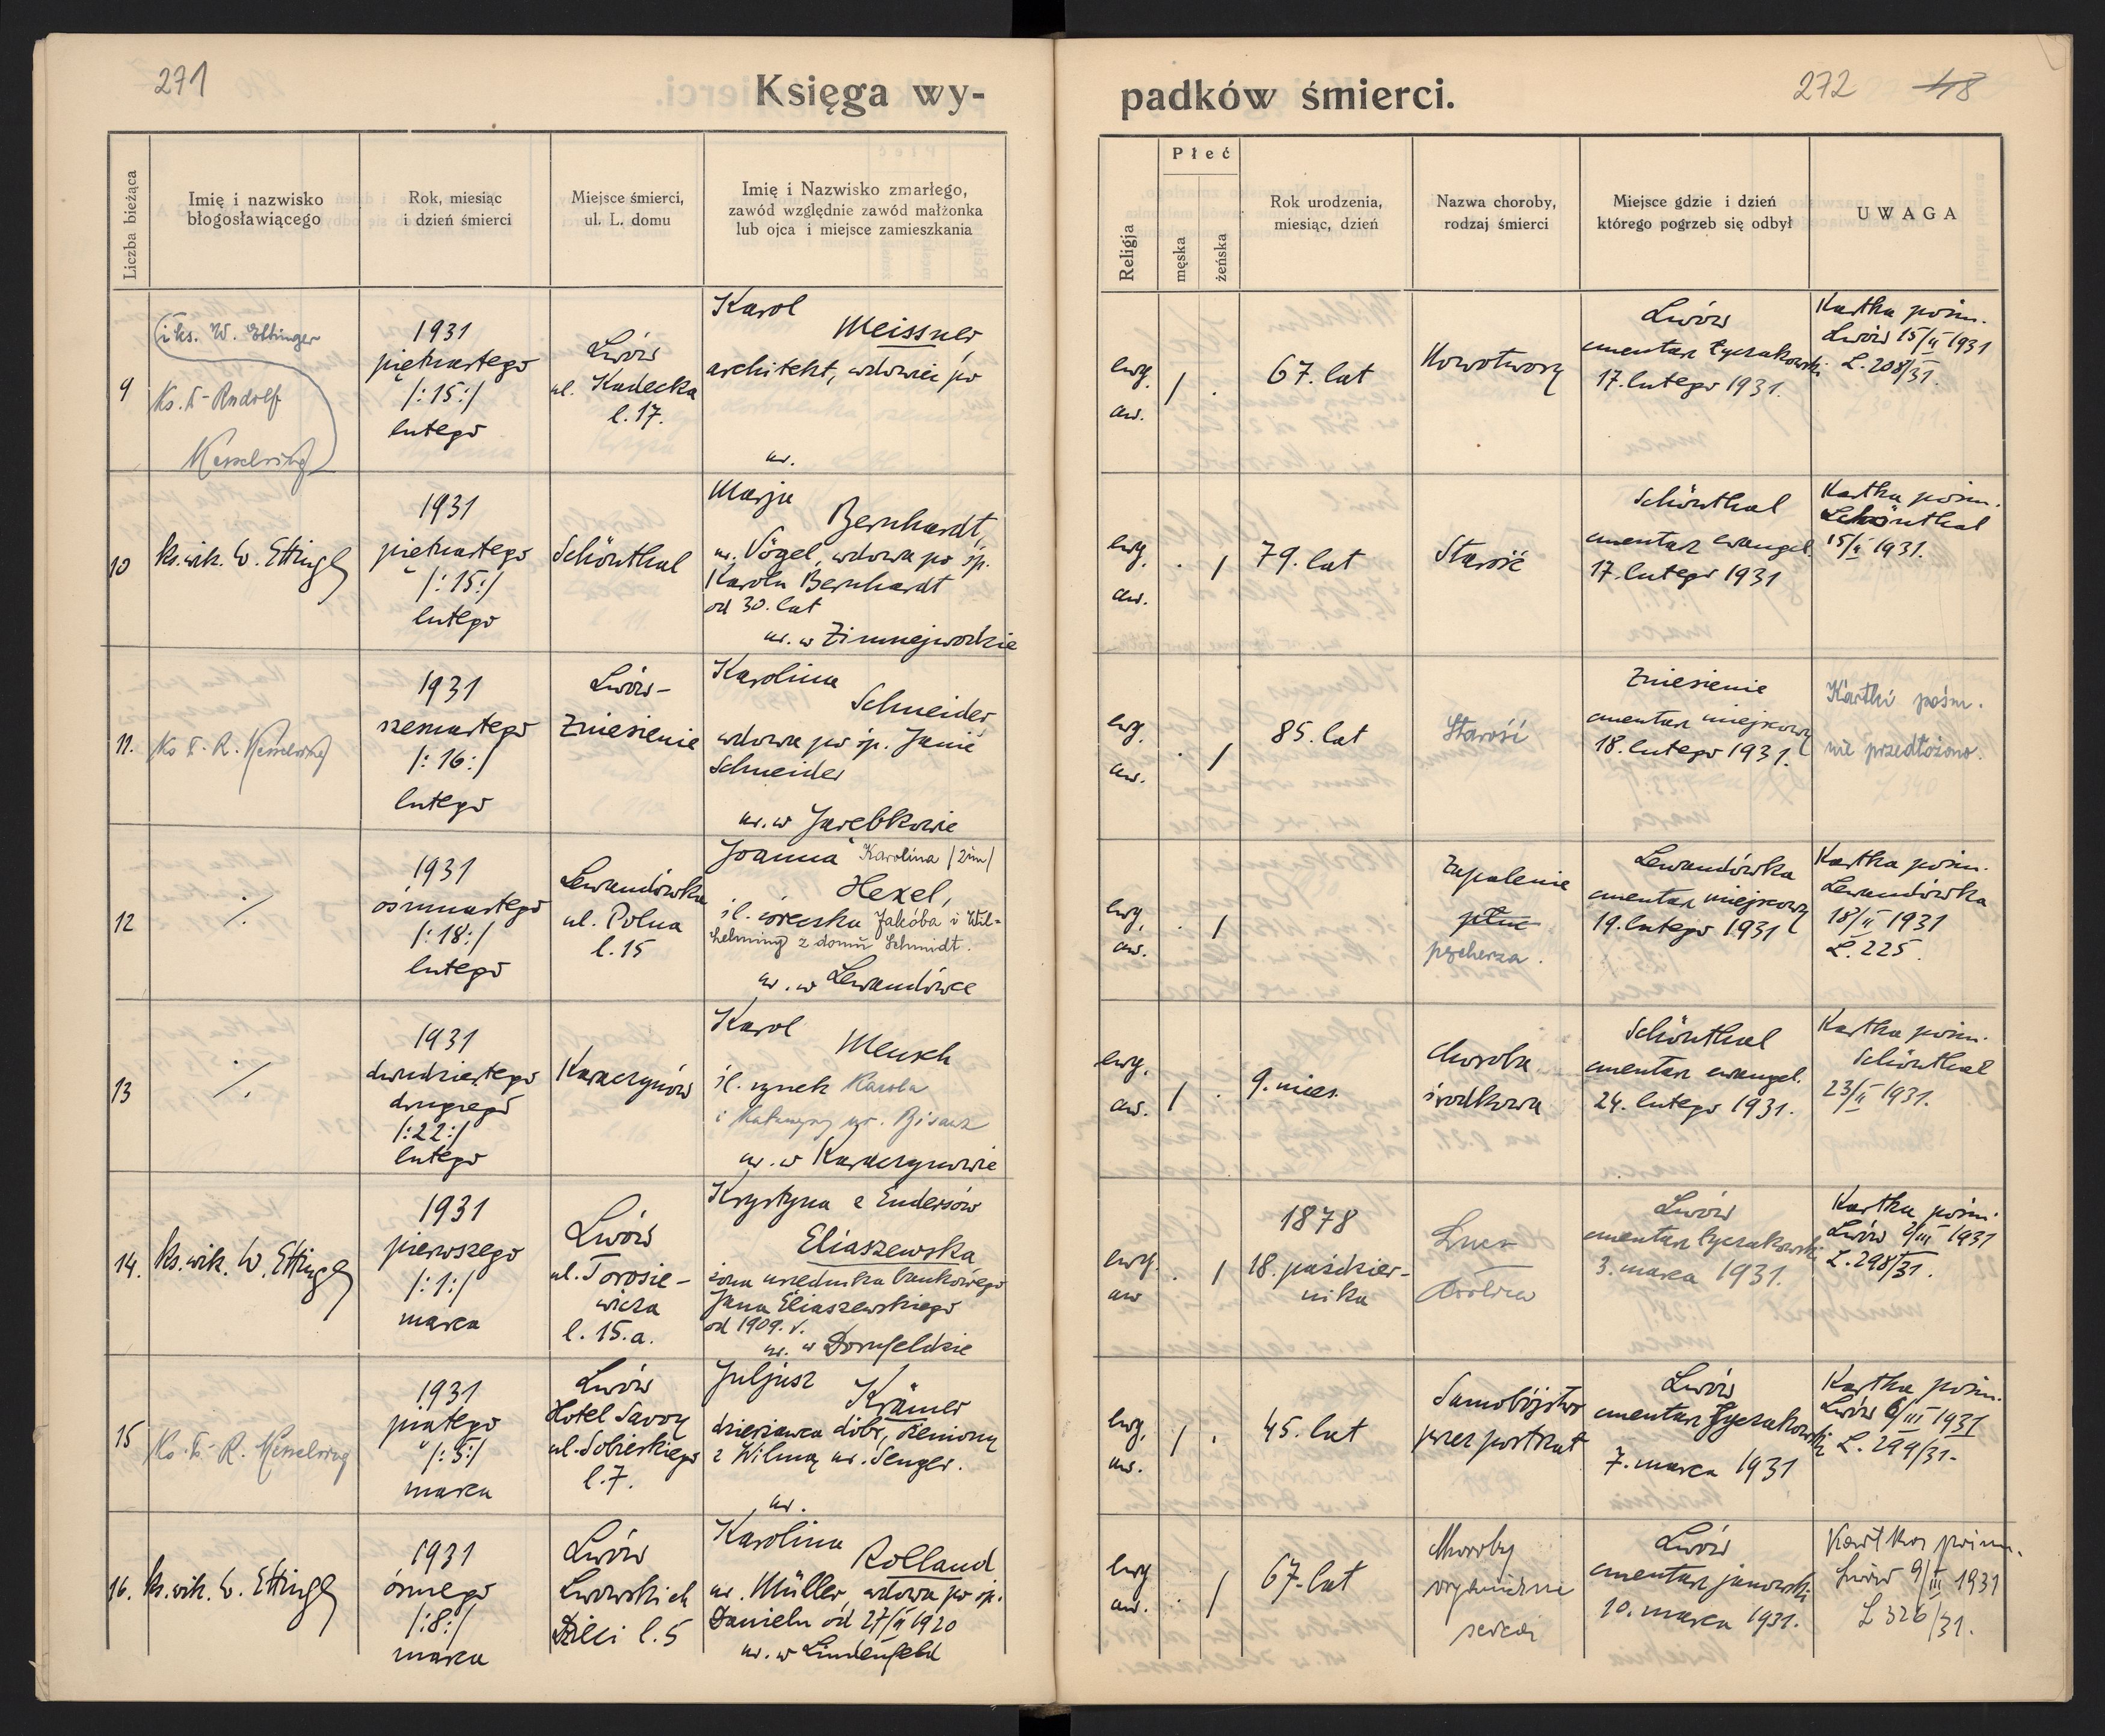 271
Księga wy-
Liczba bieżąca
Imię i nazwisko
błogosławiącego
Rok, miesiąc
i dzień śmierci
Miejsce śmierci,
ul. L. domu
Imię i Nazwisko zmarłego,
zawód względnie zawód małżonka
lub ojca i miejsce zamieszkania
9
i ks. W. Ettinger
Ks. Rudolf
Kesselring
1931
piętnastego
/:15:/
lutego
Lwów
ul. Kadecka
l. 17.
Karol
Meissner,
architekt, wdowiec po
ur.
10
ks. wik. W. Ettinger
1931
piętnastego
/:15:/
lutego
Schönthal
Marja
Bernhardt,
ur. Vögel, wdowa po śp.
Karolu Bernhardt
od 30. lat
ur. w Zimnejwodzie
11.
Ks. R. Kesselring
1931
szesnastego
/:16:/
lutego
Lwów-
Zniesienie
Karolina
Schneider
wdowa po śp. Janie
Schneider
ur. w
12
./.
1931
ośmnastego
/:18:/
lutego
Lewandówka
ul. Polna
l. 15
Joanna Karolina (2im)
Hexel,
śl. córeczka Jakóba i Wil-
helminy z domu Schmidt.
ur. w Lewandówce
13
./.
1931
dwudziestego
drugiego
/:22:/
lutego
Karaczynów
Karol
Mensch
śl. synek Karola
i Katarzyny ur. Bisanz
ur. w Karaczynowie
14.
ks. wik. W. Ettinger
1931
pierwszego
/:1:/
marca
Lwów
ul. Torosie-
wicza
l. 15.a.
Krystyna z Endersów
Eliaszewska
żona urzędnika bankowego
Jana Eliaszewskiego
od 1909. r.
ur. w Dornfeldzie
15
Ks. R. Kesselring
1931
piątego
/:5:/
marca
Lwów
Hotel Savoy
ul. Sobieskiego
l. 7.
Juljusz
Krämer
dzierżawca dóbr, żeniony
z Wilmą ur. Senger.
ur.
16.
ks. wik. W. Ettinger
1931
ósmego
/:8:/
marca
Lwów
Lwowskich
Dzieci l. 5
Karolina
Rolland
ur. Müller, wdowa po śp.
Danielu od 27/II 1920
ur. w Lindenfeld
272 48
padków śmierci.
Religja
Płeć
męska
żeńska
Rok urodzenia,
miesiąc, dzień
Nazwa choroby,
rodzaj śmierci
Miejsce gdzie i dzień
którego pogrzeb się odbył
UWAGA
ewg.
aw.
/ .
67. lat
Nowotwory
Lwów
cmentarz Łyczakowski
17. lutego 1931.
Kartka pośm.
Lwów 15/II 1931
L. 208/31.
ewg.
aw.
. /
79. lat
Starość
Schönthal
cmentarz ewangel.
17. lutego 1931
Kartka pośm.
Schönthal
15/II 1931.
ewg.
aw.
. /
85. lat
Starość
Zniesienie
cmentarz miejscowy
18. lutego 1931.
Kartki pośm.
nie przedłożono.
ewg.
aw.
. /
Zapalenie
płuc
pęcherza.
Lewandówka
cmentarz miejscowy
19. lutego 1931
Kartka pośm.
Lewandówka
18/II 1931
L. 225.
ewg.
aw.
/ .
9. mies.
choroba
środkowa
Schönthal
cmentarz ewangel.
24. lutego 1931.
Kartka pośm.
Schönthal
23/II 1931.
ewg.
aw
. /
1878
18. paździer-
nika
Lwów
cmentarz Łyczakowski
3. marca 1931.
Kartka pośm
Lwów 2/III 1931
L. 298/31.
ewg.
aw.
/ .
45. lat
Samobójstwo
przez postrzał
Lwów
cmentarz Łyczakowski
7. marca 1931
Kartka pośm.
Lwów 6/III 1931
L. 299/31.
ewg
aw.
. /
67. lat
Choroby
organiczne
serca
Lwów
cmentarz janowski
10. marca 1931.
Kartka pośm.
Lwów 9/III 1931
L 326/31.